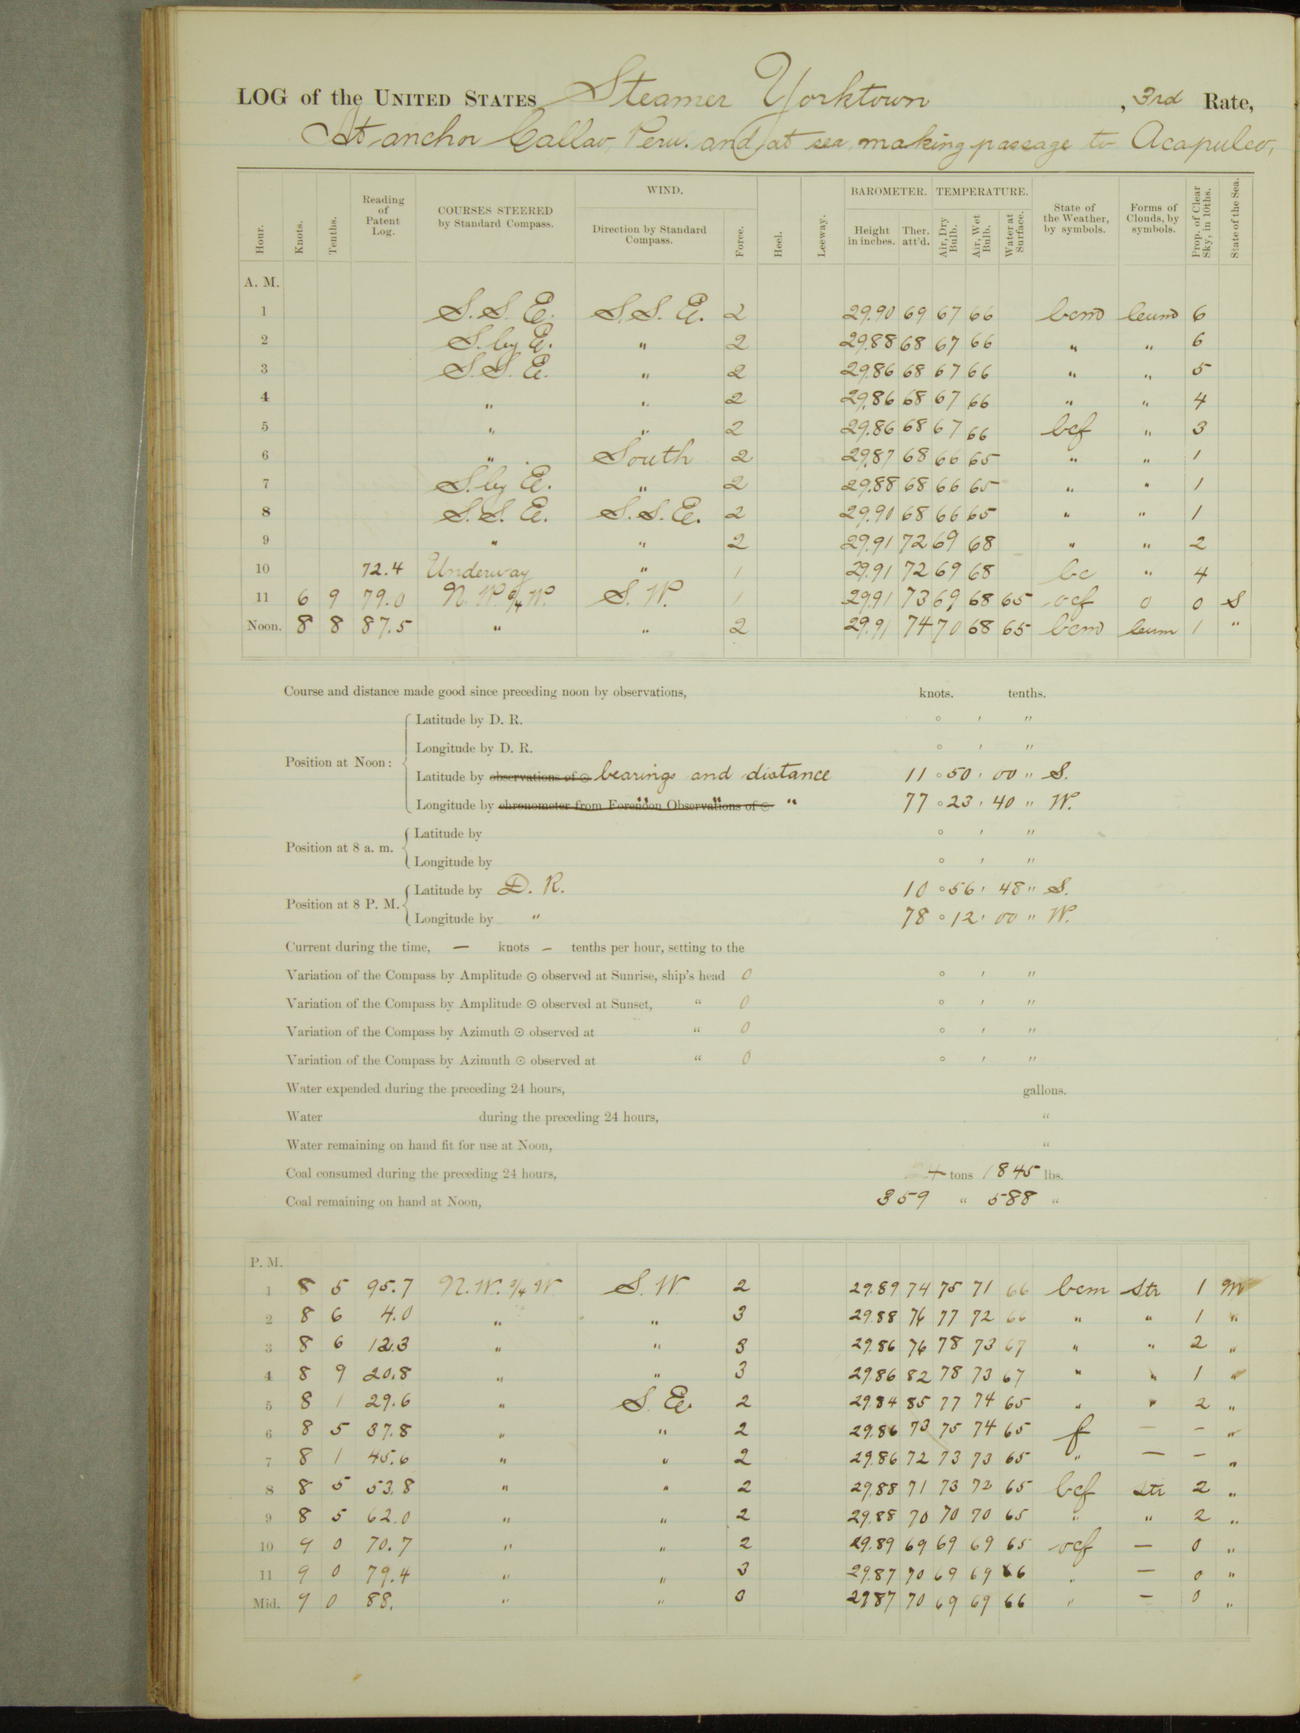 LOG of the UNITED STATES Steamer Yorktown , 3rd Rate,
At anchor Callao, Peru. and at sea making passage to Acapulco,
Hour. Knots. Tenths. Reading of Patent Log. COURSES STEERED by Standard Compass. WIND. Direction by Standard Compass. Force. Heel. Leeway. BAROMETER. Height in inches. Ther. att'd. TEMPERATURE. Air, Dry Bulb. Air, Wet Bulb. Water at Surface. State of the Weather, by symbols. Forms of Clouds, by symbols. Prop. of Clear Sky, in 10ths. State of the Sea.
A. M.
1 S. S. E. S. S. E. 2 29.90 69 67 66 bcm cum 6
2 S. by E. " 2 29.88 68 67 66 " " 6
3 S. S. E. " 2 29.86 68 67 66 " " 5
4 " " 2 29.86 68 67 66 " " 4
5 " " 2 29.86 68 67 66 bcf " 3
6 " South 2 29.87 68 66 65 " " 1
7 S. by E. " 2 29.88 68 66 65 " " 1
8 S. S. E. S. S. E. 2 29.90 68 66 65 " " 1
9 " " 2 29.91 72 69 68 " " 2
10 72.4 Underway " 1 29.91 72 69 68 bc " 4
11 6 9 79.0 N. W. 3/4 W. S. W. 1 29.91 73 69 68 65 ocf 0 0 S
Noon. 8 8 87.5 " " 2 29.91 74 70 68 65 bcm cum 1 "
Course and distance made good since preceding noon by observations, knots. tenths.
Position at Noon:
Latitude by D. R. ° ′ ″
Longitude by D. R. ° ′ ″
Latitude by observations of ☉ bearings and distance 11 ° 50 ′ 00 ″ S.
Longitude by chronometer from Forenoon Observations of ☉ " " " 77 ° 23 ′ 40 ″ W.
Position at 8 a. m.
Latitude by ° ′ ″
Longitude by ° ′ ″
Position at 8 P. M.
Latitude by D. R. 10 ° 56 ′ 48 ″ S.
Longitude by " 78 ° 12 ′ 00 ″ W.
Current during the time, — knots — tenths per hour, setting to the
Variation of the Compass by Amplitude ☉ observed at Sunrise, ship's head 0 ° ′ ″
Variation of the Compass by Amplitude ☉ observed at Sunset, " 0 ° ′ ″
Variation of the Compass by Azimuth ☉ observed at " 0 ° ′ ″
Variation of the Compass by Azimuth ☉ observed at " 0 ° ′ ″
Water expended during the preceding 24 hours, gallons.
Water during the preceding 24 hours, "
Water remaining on hand fit for use at Noon, "
Coal consumed during the preceding 24 hours, tons 1845 lbs.
Coal remaining on hand at Noon, 359 " 588 "
P. M.
1 8 5 95.7 N. W. 3/4 W S. W 2 29.89 74 75 71 66 bcm Str 1 M
2 8 6 4.0 " " 3 29.88 76 77 72 66 " " 1 "
3 8 6 12.3 " " 3 29.86 76 78 73 67 " " 2 "
4 8 9 20.8 " " 3 29.86 82 78 73 67 " " 1 "
5 8 1 29.6 " S. E. 2 29.84 85 77 74 65 " " 2 "
6 8 5 37.8 " " 2 29.86 73 75 74 65 f — – "
7 8 1 45.6 " " 2 29.86 72 73 73 65 " — – "
8 8 5 53.8 " " 2 29.88 71 73 72 65 bcf Str 2 "
9 8 5 62.0 " " 2 29.88 70 70 70 65 " " 2 "
10 9 0 70.7 " " 2 29.89 69 69 69 65 ocf — 0 "
11 9 0 79.4 " " 3 29.87 70 69 69 66 " — 0 "
Mid. 9 0 88. " " 3 29.87 70 69 69 66 " — 0 "